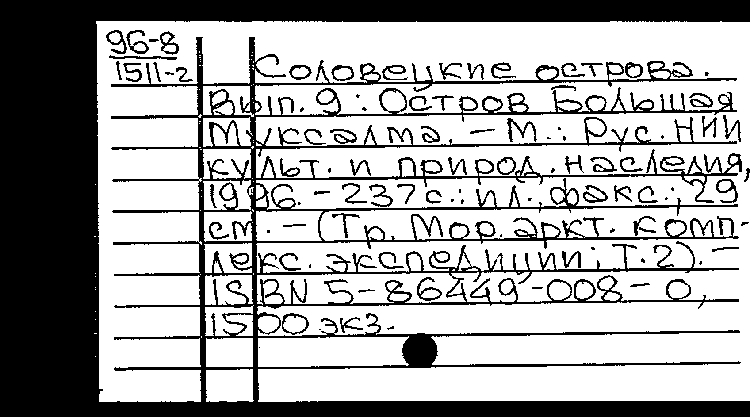 96-8
1511-2
Соловецкие острова.
Вып. 9 : Остров Большая
Муксалма. – М.: Рус. НИИ
культ. и природ. наследия,
1996. – 237 с.: ил., факс.; 29
см. – (Тр. Мор. аркт. комп-
лекс. экспедиции; Т. 2). –
ISBN 5-86449-008-0,
1500 экз.